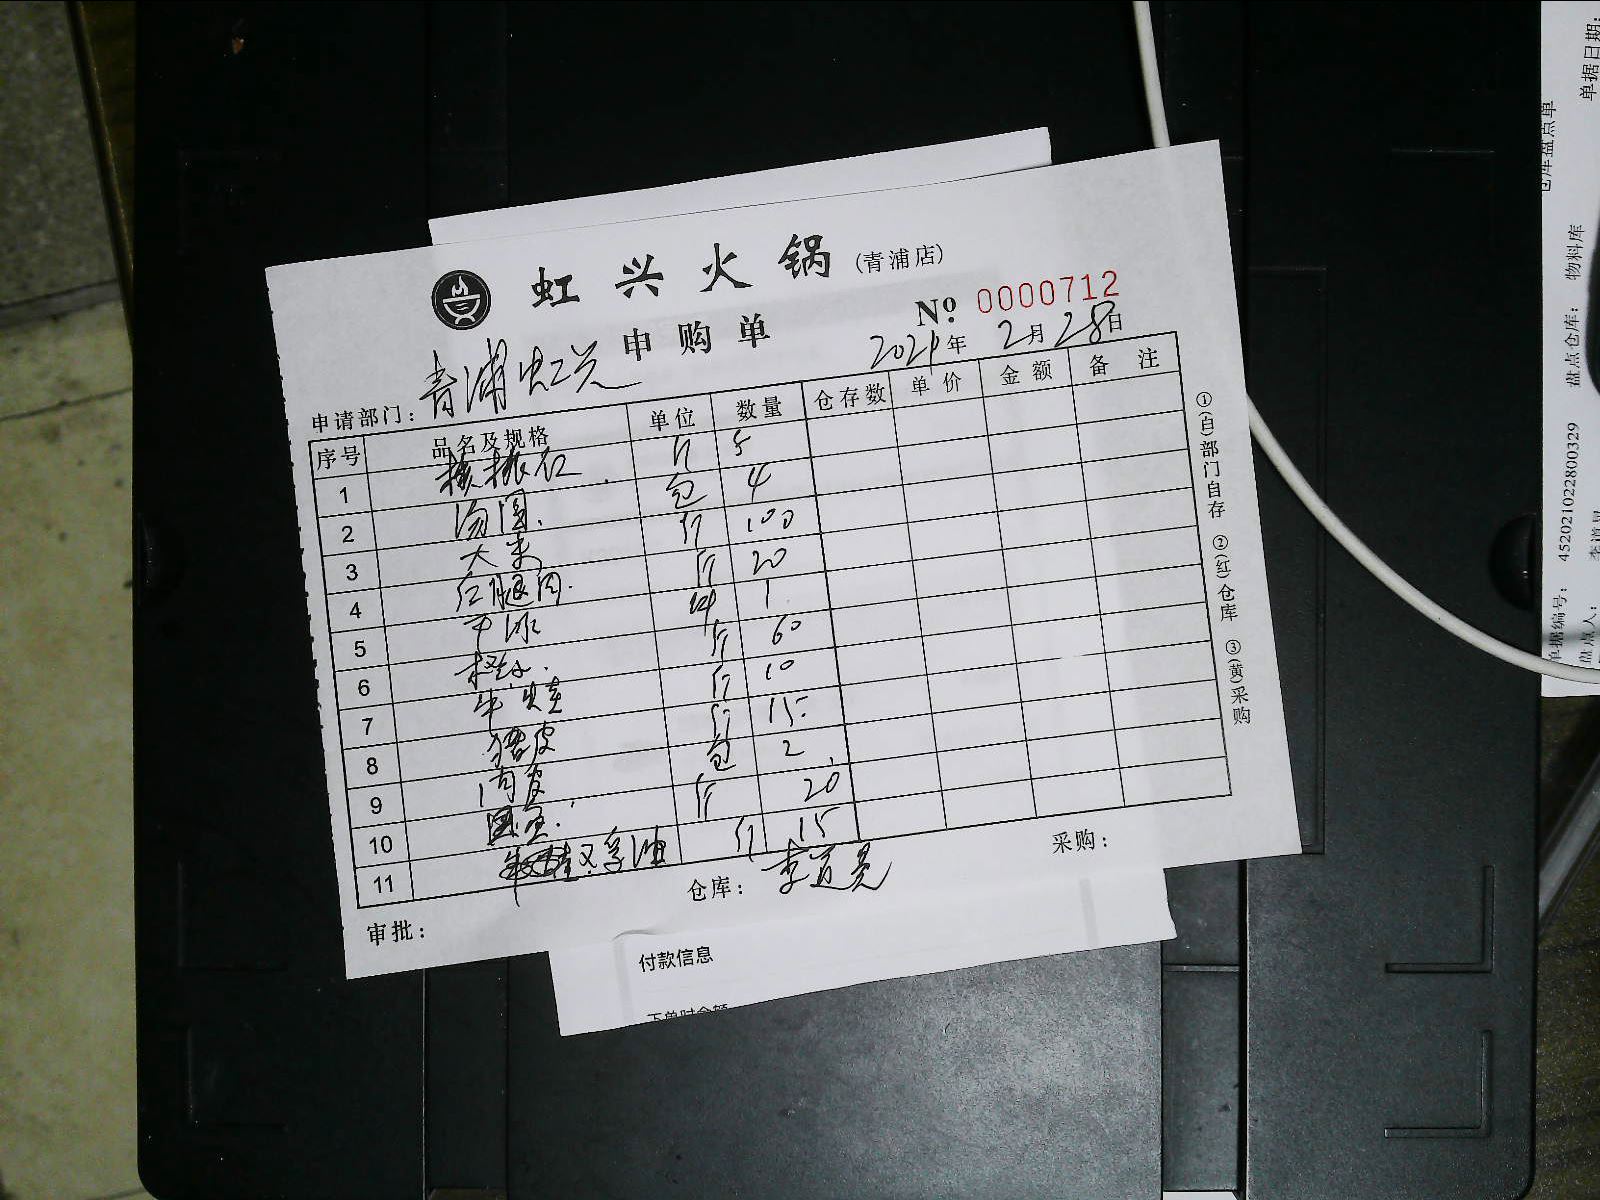 虹兴火锅(青浦店)
申购单
№ 0000712
2021年2月28日
申请部门：青浦虹兴
序号 品名及规格 单位 数量 仓存数 单价 金额 备注
1 斤 5
2 汤圆. 包 4
3 大米 斤 100
4 红腿肉. 斤 20
5 干冰 1
6 斤 60
7 牛 斤 10
8 猪皮 斤 15
9 肉皮 包 2
10 斤 20
11 孚油 斤 15
审批： 仓库：李道亮 采购：
①(白)部门自存 ②(红)仓库 ③(黄)采购
付款信息
下单时金额
单据日期:
仓库盘点单
盘点仓库： 物料库
单据编号： 4520210228003​29
盘点人：